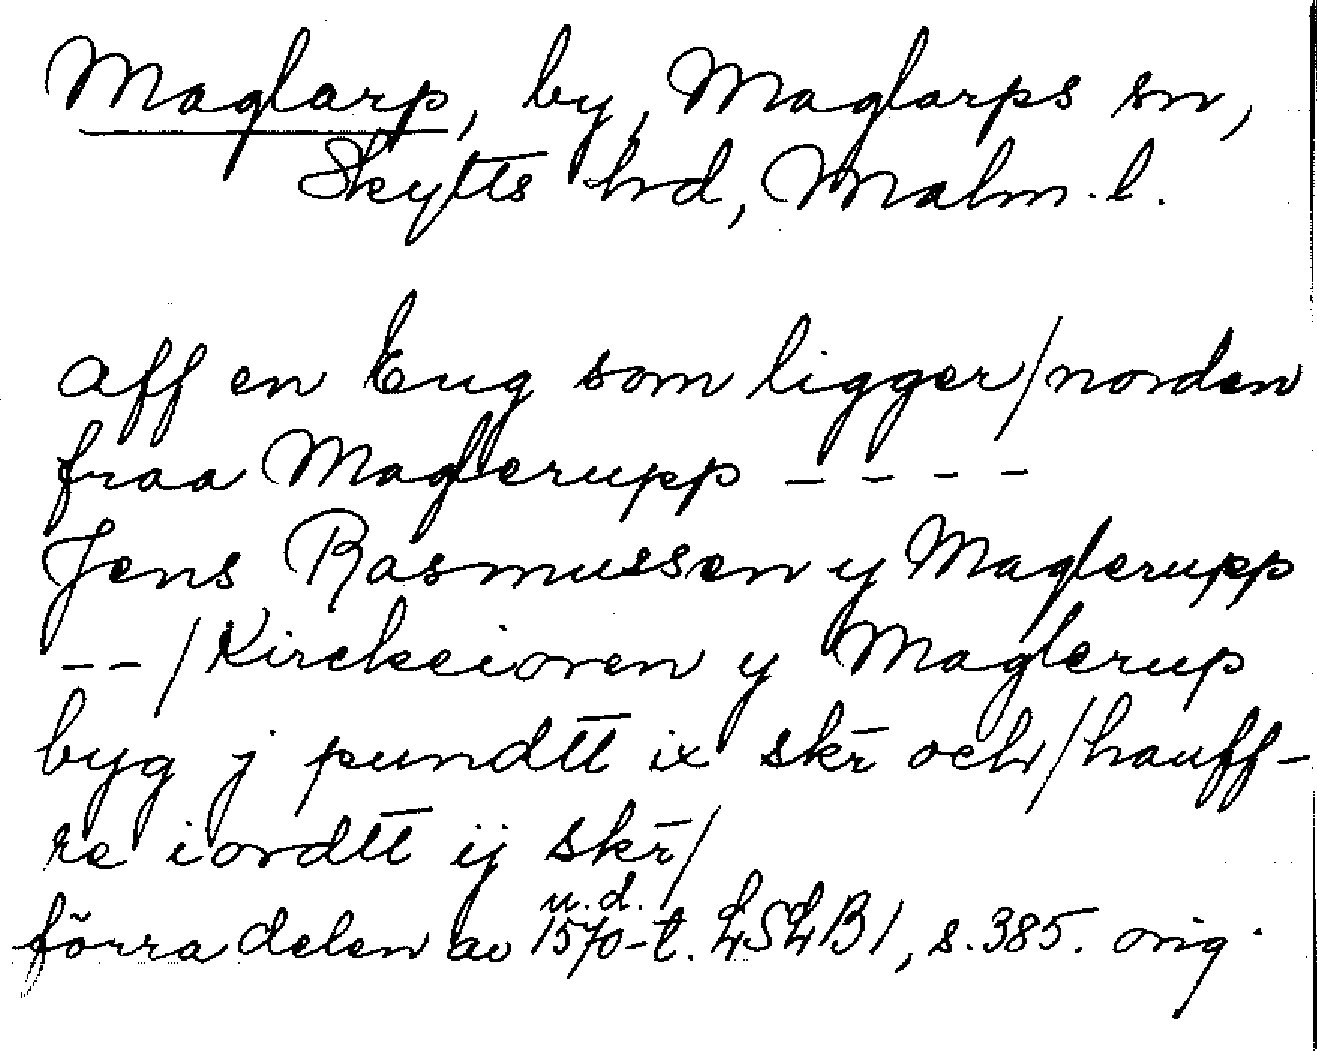 Maglarp, by, Maglarps sn,
Skytts hd, Malm. l.
Aff en Eug som ligger/norden
fraa Maglerupp – – – –
Jens Rasmussen y Maglerupp
– – /Kirckeioren y Maglerup
byg j pundtt ix skr̄ och/hauff-
re iordtt ij skr̄/
u.d.
förra delen av 1570-t. LSLB1, s. 385. orig.